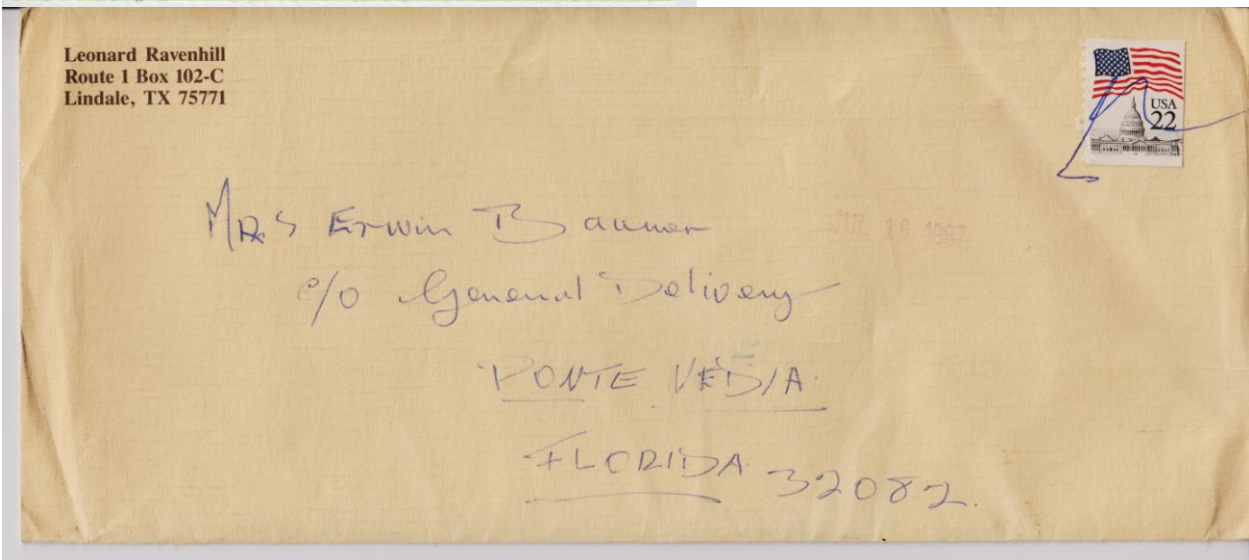 Leonard Ravenhill
Route 1 Box 102-C
Lindale, TX 75771
USA
22
MRS Erwin Bauman
JUL 16 1987
c/o General Delivery
PONTE VEDIA
FLORIDA 32082.